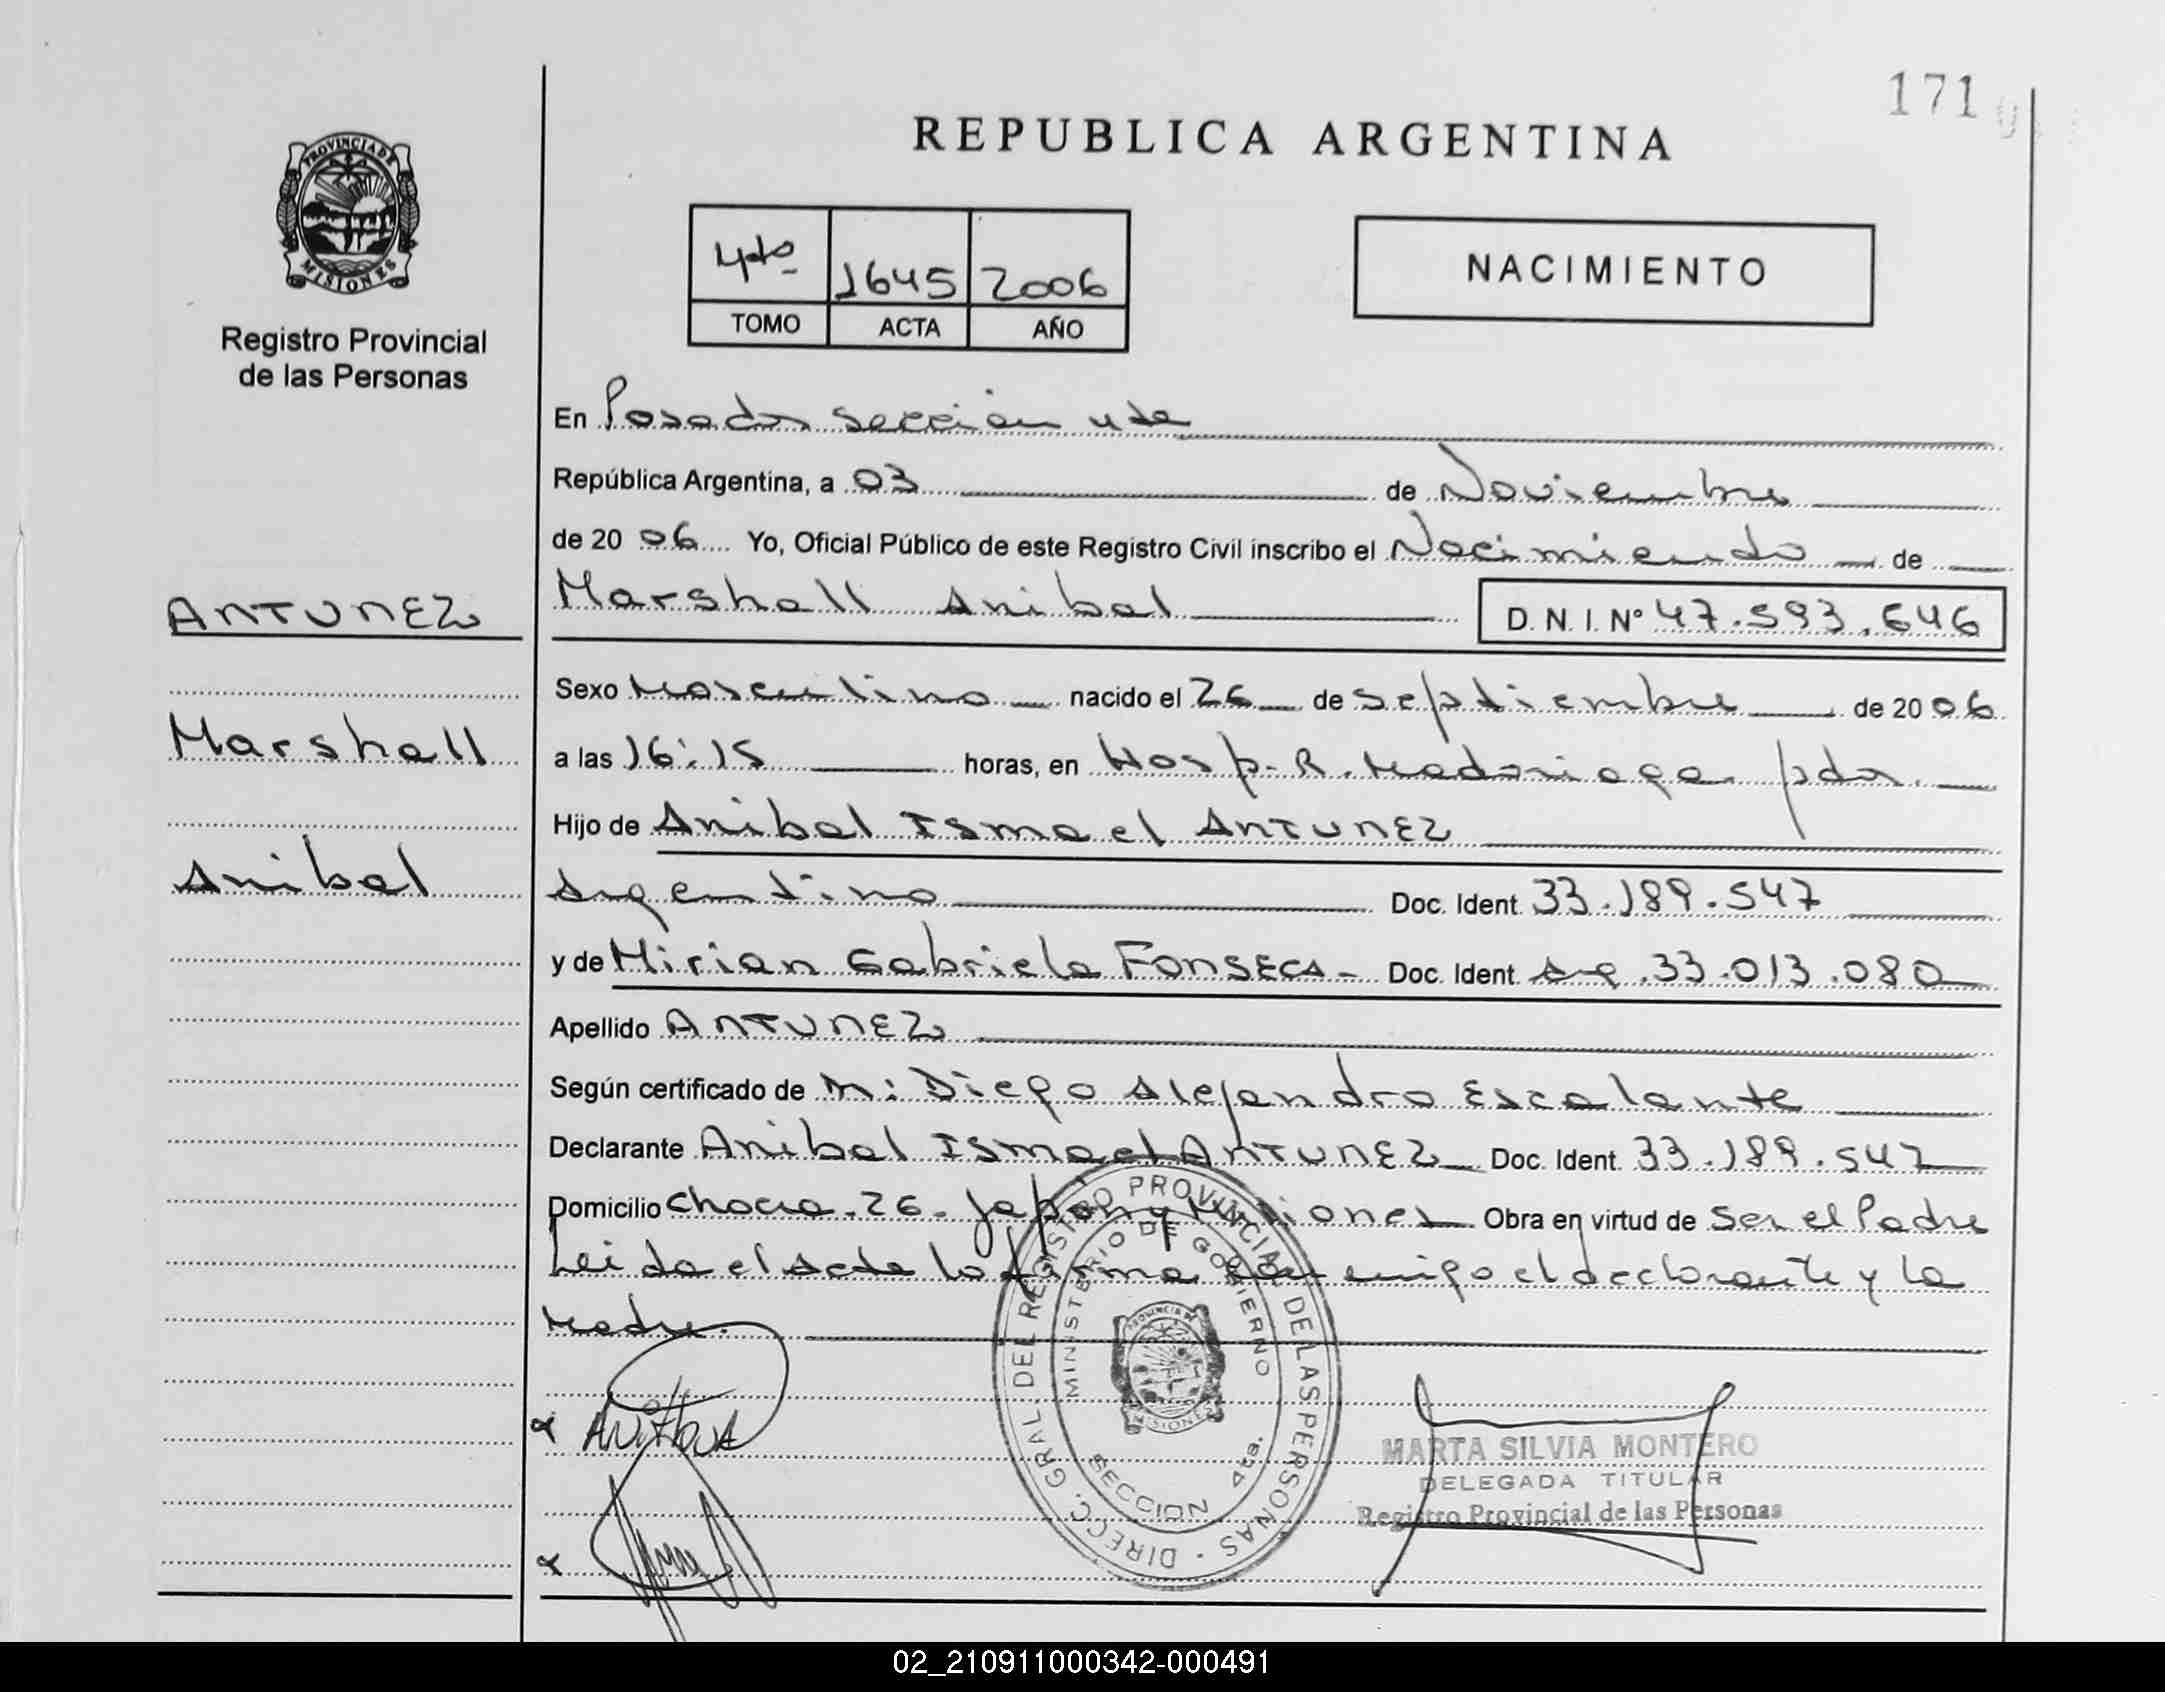 171
REPUBLICA ARGENTINA
PROVINCIA DE
MISIONES
Registro Provincial
de las Personas
4to 1645 2006
TOMO ACTA AÑO
NACIMIENTO
En Posadas sección 4ta
República Argentina, a 03 de Noviembre
de 2006 Yo, Oficial Público de este Registro Civil inscribo el Nacimiento de
Marshall Anibal D. N. I. Nº 47.593.646
ANTUNEZ
Marshall
Anibal
Sexo Masculino nacido el 26 de septiembre de 2006
a las 16:15 horas, en Hosp. R. Madariaga pdas.
Hijo de Anibal Ismael ANTUNEZ
Argentino Doc. Ident. 33.189.547
y de Mirian Gabriela FONSECA Doc. Ident. Arg. 33.013.080
Apellido ANTUNEZ
Según certificado de M: Diego Alejandro Escalante
Declarante Anibal Ismael ANTUNEZ Doc. Ident. 33.189.547
Domicilio Chacra 26. Japón y Misiones Obra en virtud de ser el Padre
Leida el Acta la firma conmigo el declarante y la
Madre.
DIRECC. GRAL. DEL REGISTRO PROVINCIAL DE LAS PERSONAS
MINISTERIO DE GOBIERNO
PROVINCIA DE
MISIONES
SECCION 4ta.
MARTA SILVIA MONTERO
DELEGADA TITULAR
Registro Provincial de las Personas
02_210911000342-000491